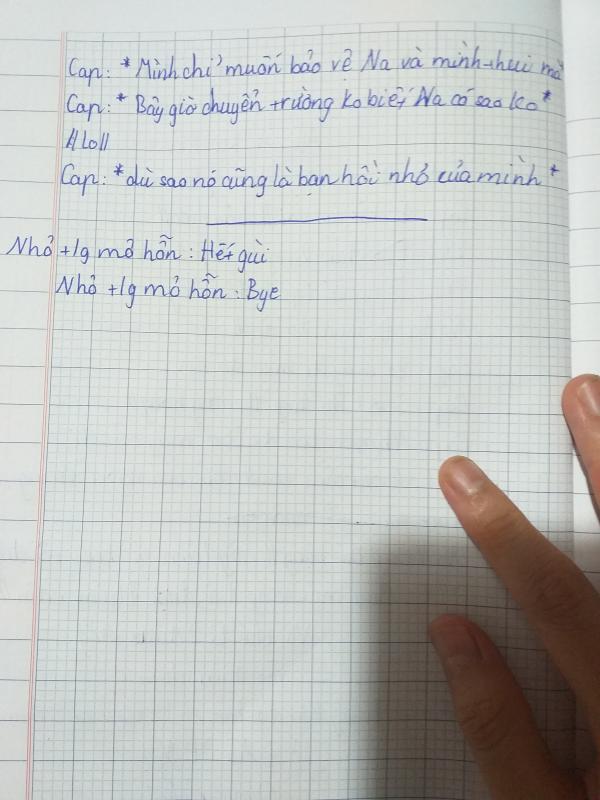 Cap: *Mình chỉ muốn bảo vệ Na và mình thui mà
Cap: * Bây giờ chuyển trường ko biết Na có sao ko*
Cap: *dù sao nó cũng là bạn hồi nhỏ của mình*
Nhỏ tg mỏ hỗn: Hết gùi
Nhỏ tg mỏ hỗn: Bye